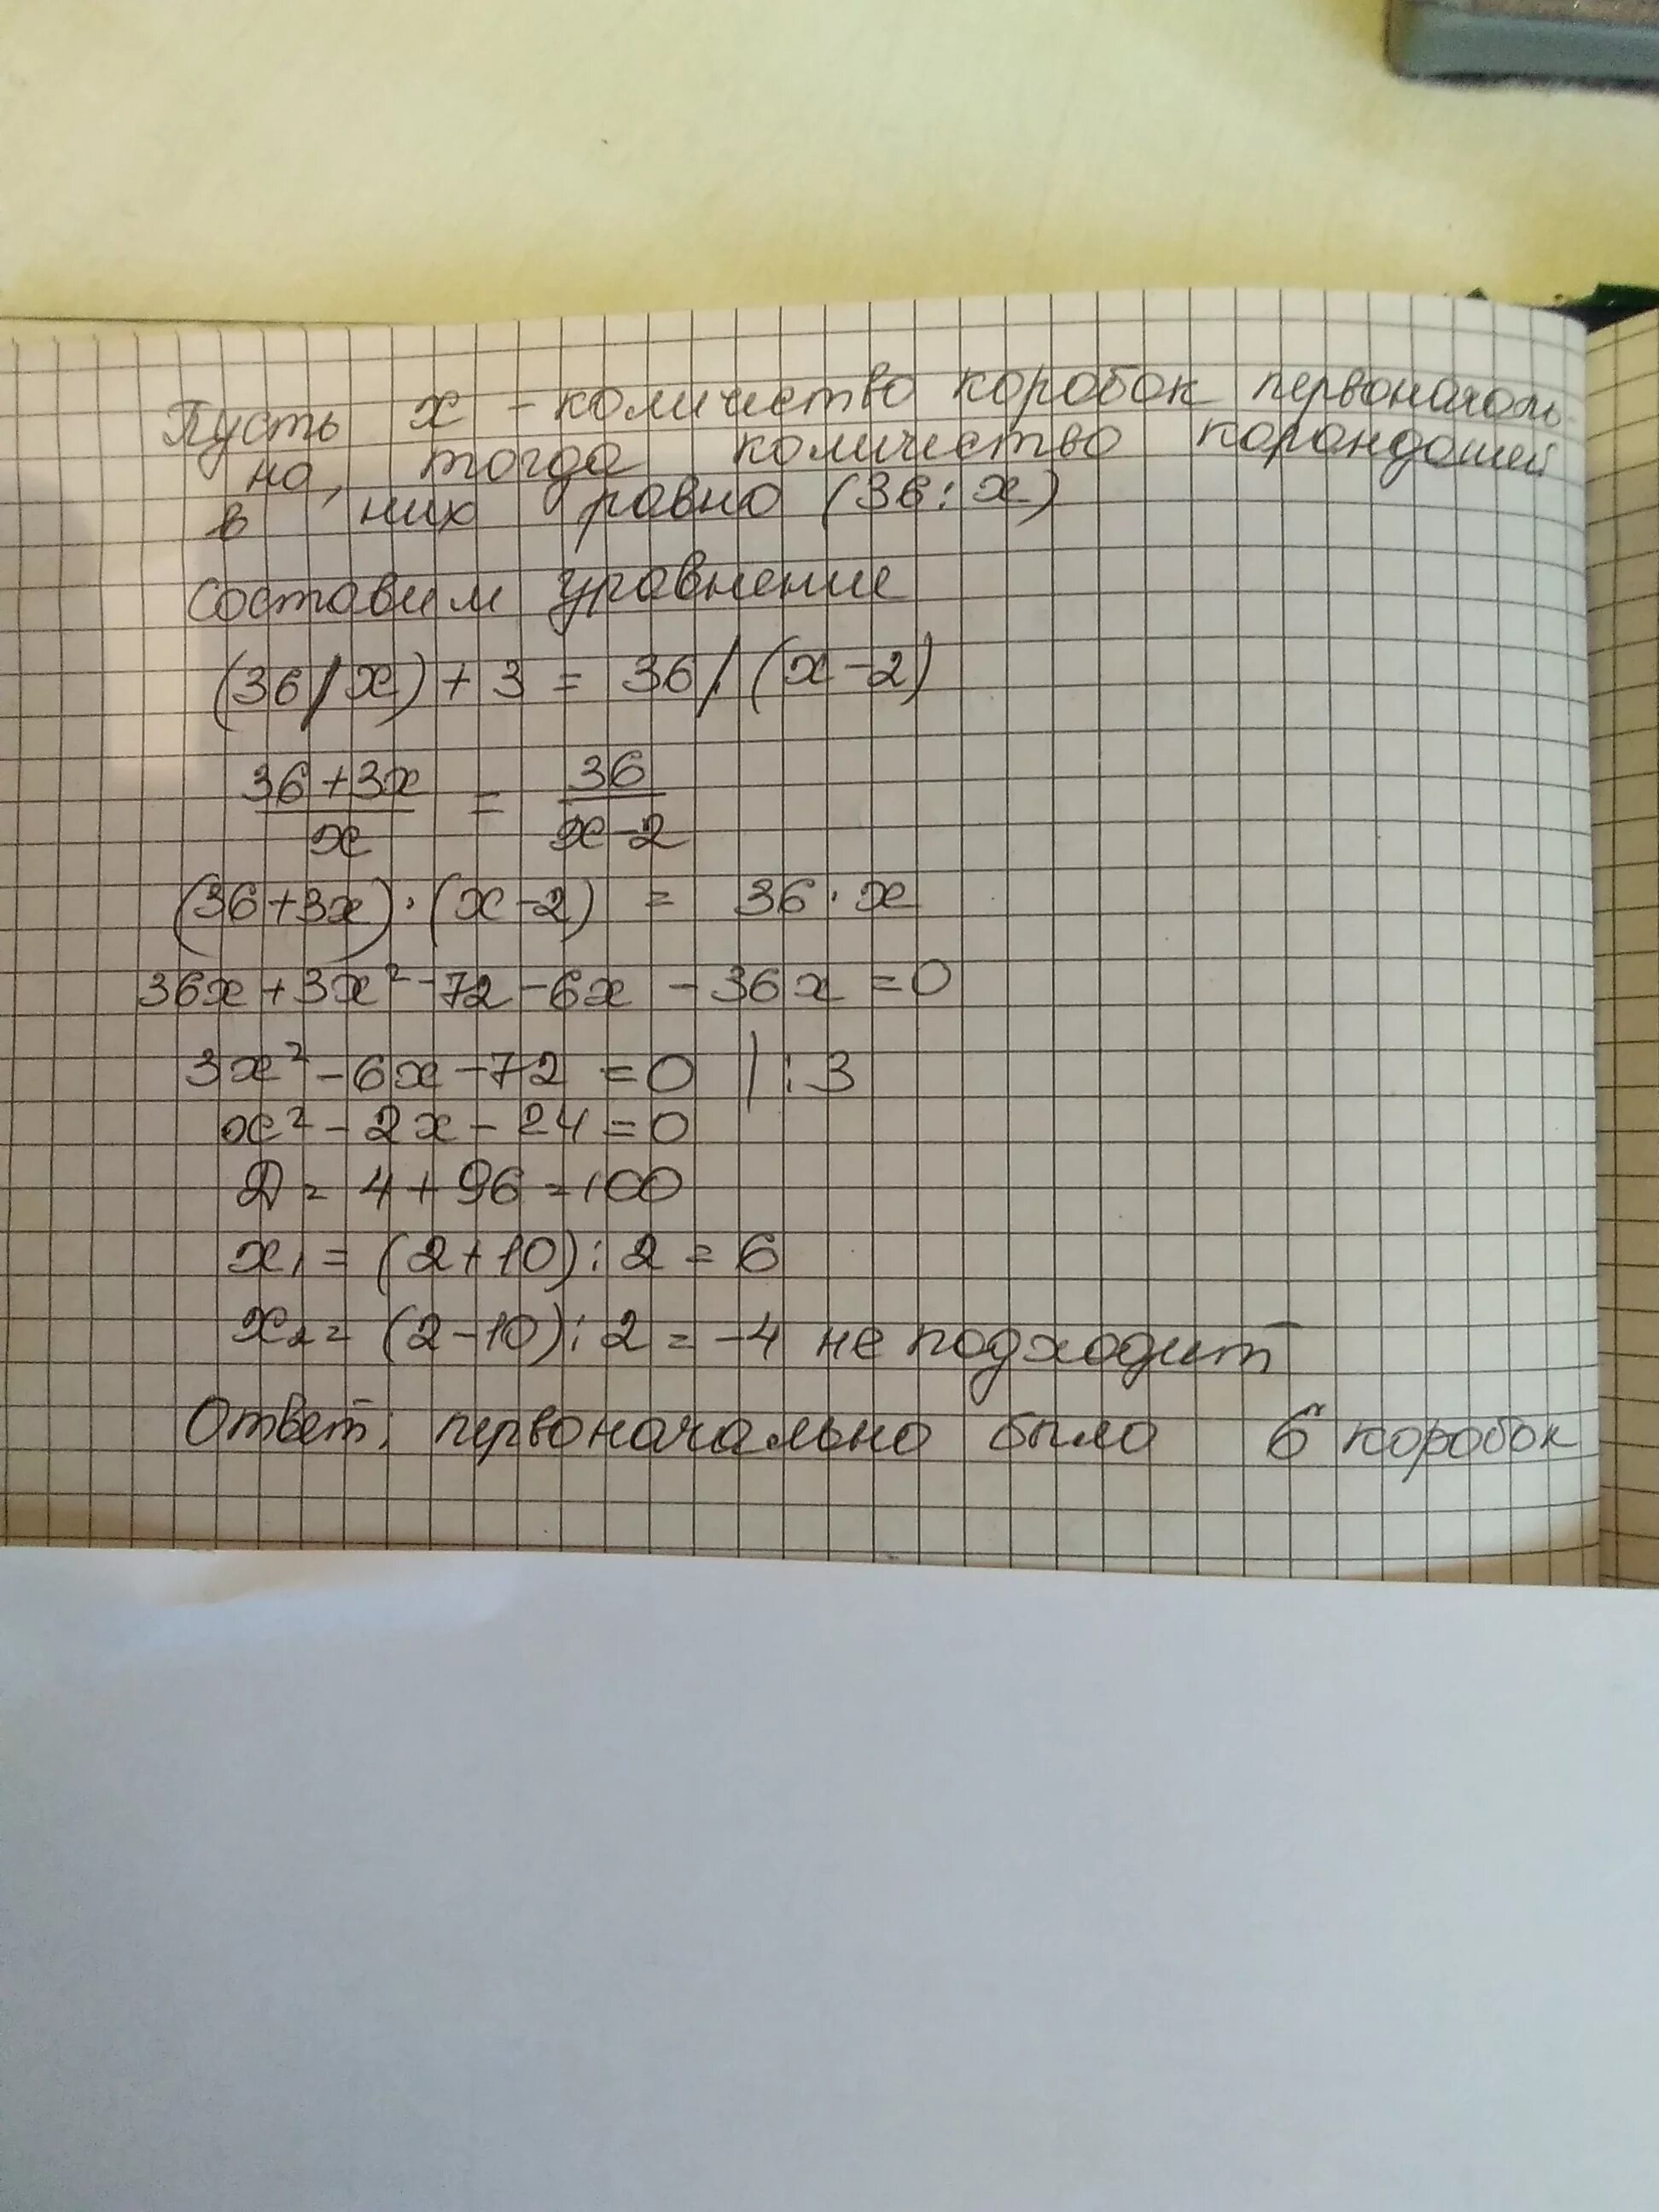 Пусть x - количество коробок первоначаль-
но, тогда количество карандашей
в них равно (36 : x)
Составим уравнение
(36/x) + 3 = 36/(x-2)
36+3x/x = 36/x-2
(36+3x)·(x-2) = 36·x
36x+3x²-72-6x-36x=0
3x²-6x-72=0 |:3
x²-2x-24=0
D=4+96=100
x₁=(2+10):2=6
x₂=(2-10):2=-4 не подходит
Ответ: первоначально было 6 коробок